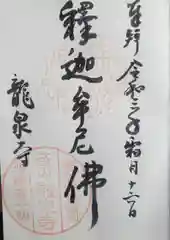 奉拝 令和三年霜月十六日
釋迦牟尼佛
龍泉寺